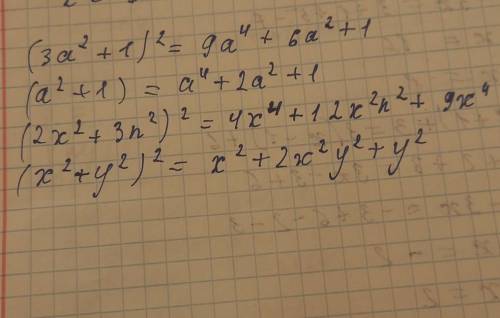 (3a² + 1)² = 9a⁴ + 6a² + 1
(a² + 1) = a⁴ + 2a² + 1
(2x² + 3n²)² = 4x⁴ + 12x²n² + 9x⁴
(x² + y²)² = x² + 2x²y² + y²